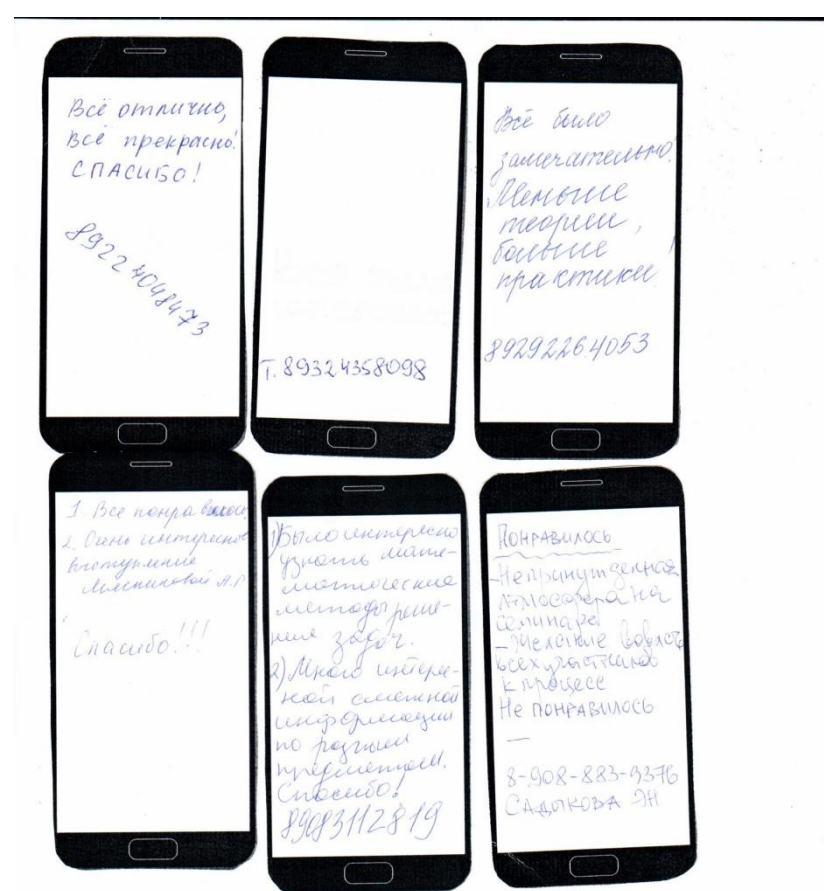 Всё отлично,
Всё прекрасно!
СПАСИБО!
89224048473
Т. 89324358098
Всё было
замечательно!
Меньше
теории,
больше
практики!
89292264053
1. Все понравилось
2. Очень интересное
выступление
А.Г
Спасибо!!!
1) Было интересно
узнать мате-
матические
методы реше-
ния задач.
2) Много интере-
ной смежной
информации
по разным
предметам.
Спасибо!
89083112819
ПОНРАВИЛОСЬ
- Непринужденная
атмосфера на
семинаре
- Желание
всех участников
к процессе
Не ПОНРАВИЛОСЬ
—
8-908-883-9376
САДЫКОВА ЭН